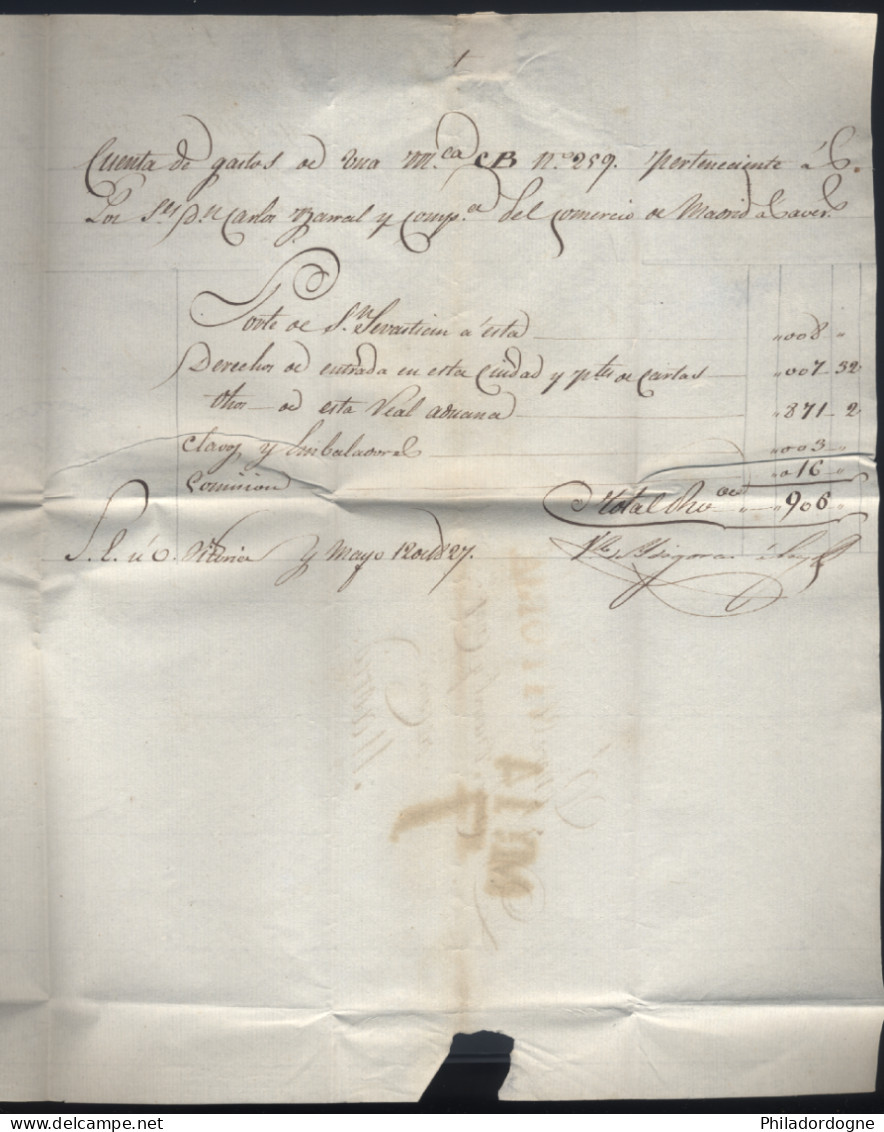 1
Cuenta de gastos de una m.ca CB N.o 259. perteneciente á
Los S.res D.n Carlos Barral y Comp.a del Comercio de Madrid á saver.
Porte de S.n Sevastian á esta „008 „
Derechos de entrada en esta Ciudad y p.tes de Cartas „007 32
dhos de esta Real aduana „871 2
Clavos y Embalador „003 „
Comision „016 „
total Rvon „906 „
S. E. ú O. Vitoria y Mayo 12 de 1827.
MILA
www.delcampe.net
Philadordogne